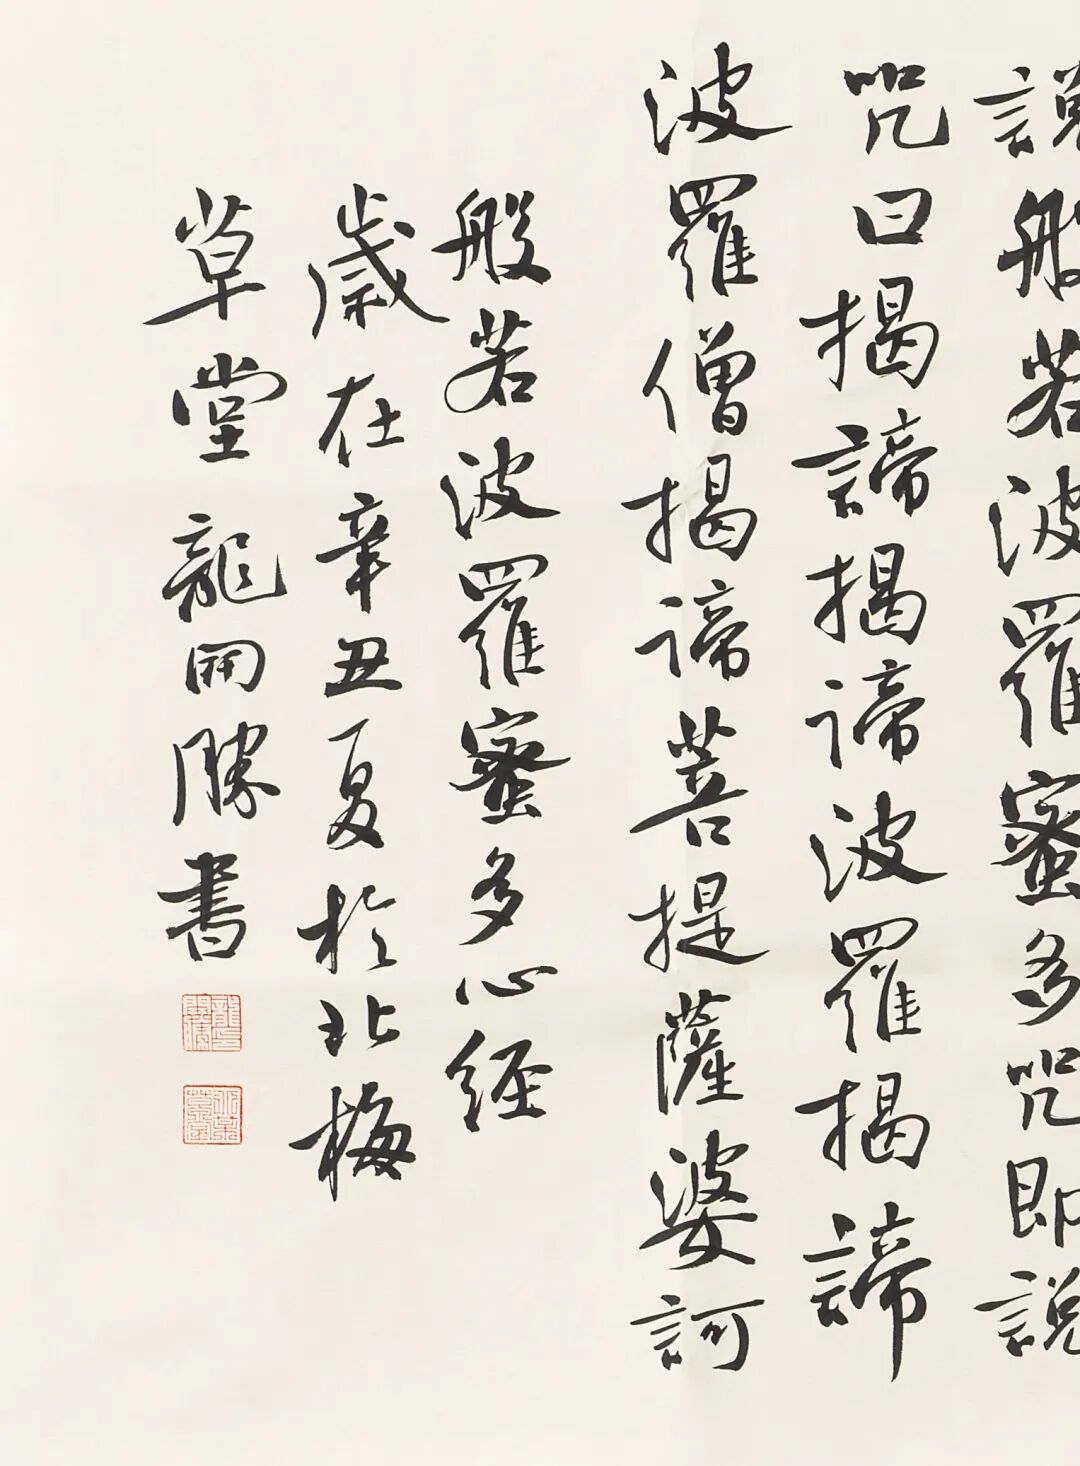 說般若波羅蜜多咒即說
咒曰揭諦揭諦波羅揭諦
波羅僧揭諦菩提薩婆訶
般若波羅蜜多心經
歲在辛丑夏於北梅
草堂龍開勝書